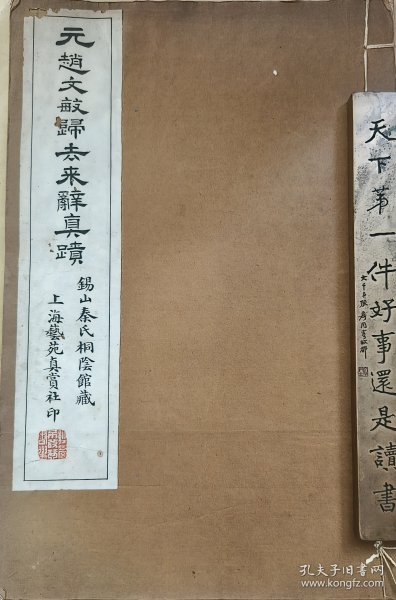 元趙文敏歸去来辭真蹟
錫山秦氏桐陰館藏
上海藝苑真賞社印
天下第一件好事還是讀書
孔夫子旧书网
https://www.kongfz.com